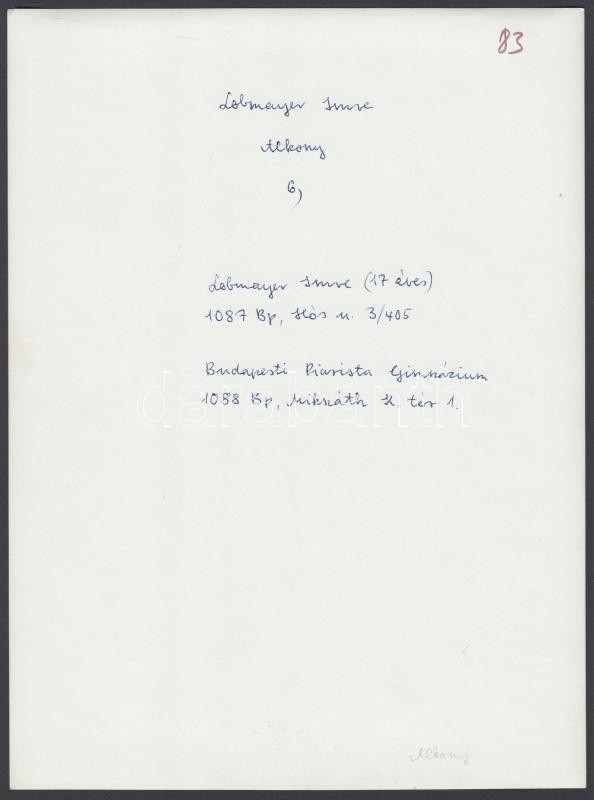 83
Lobmayer Imre
Alkony
6,
Lobmayer Imre (17 éves)
1087 Bp, Hős u. 3/405
Budapesti Piarista Gimnázium
1088 Bp, Mikszáth K. tér 1.
darabanth
Alkony